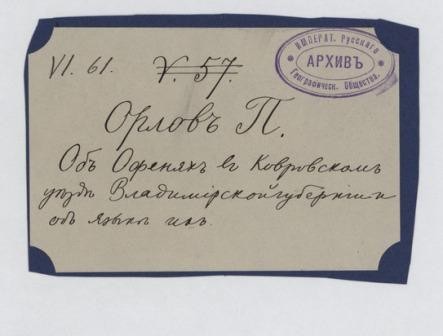 VI. 61. V. 57.
ИМПЕРАТ. Русскаго
АРХИВЪ
Географическ. Общества.
Орловъ П.
Объ Офеняхъ въ Ковровскомъ
уѣздѣ Владимірской губерніи и
объ языкѣ ихъ.